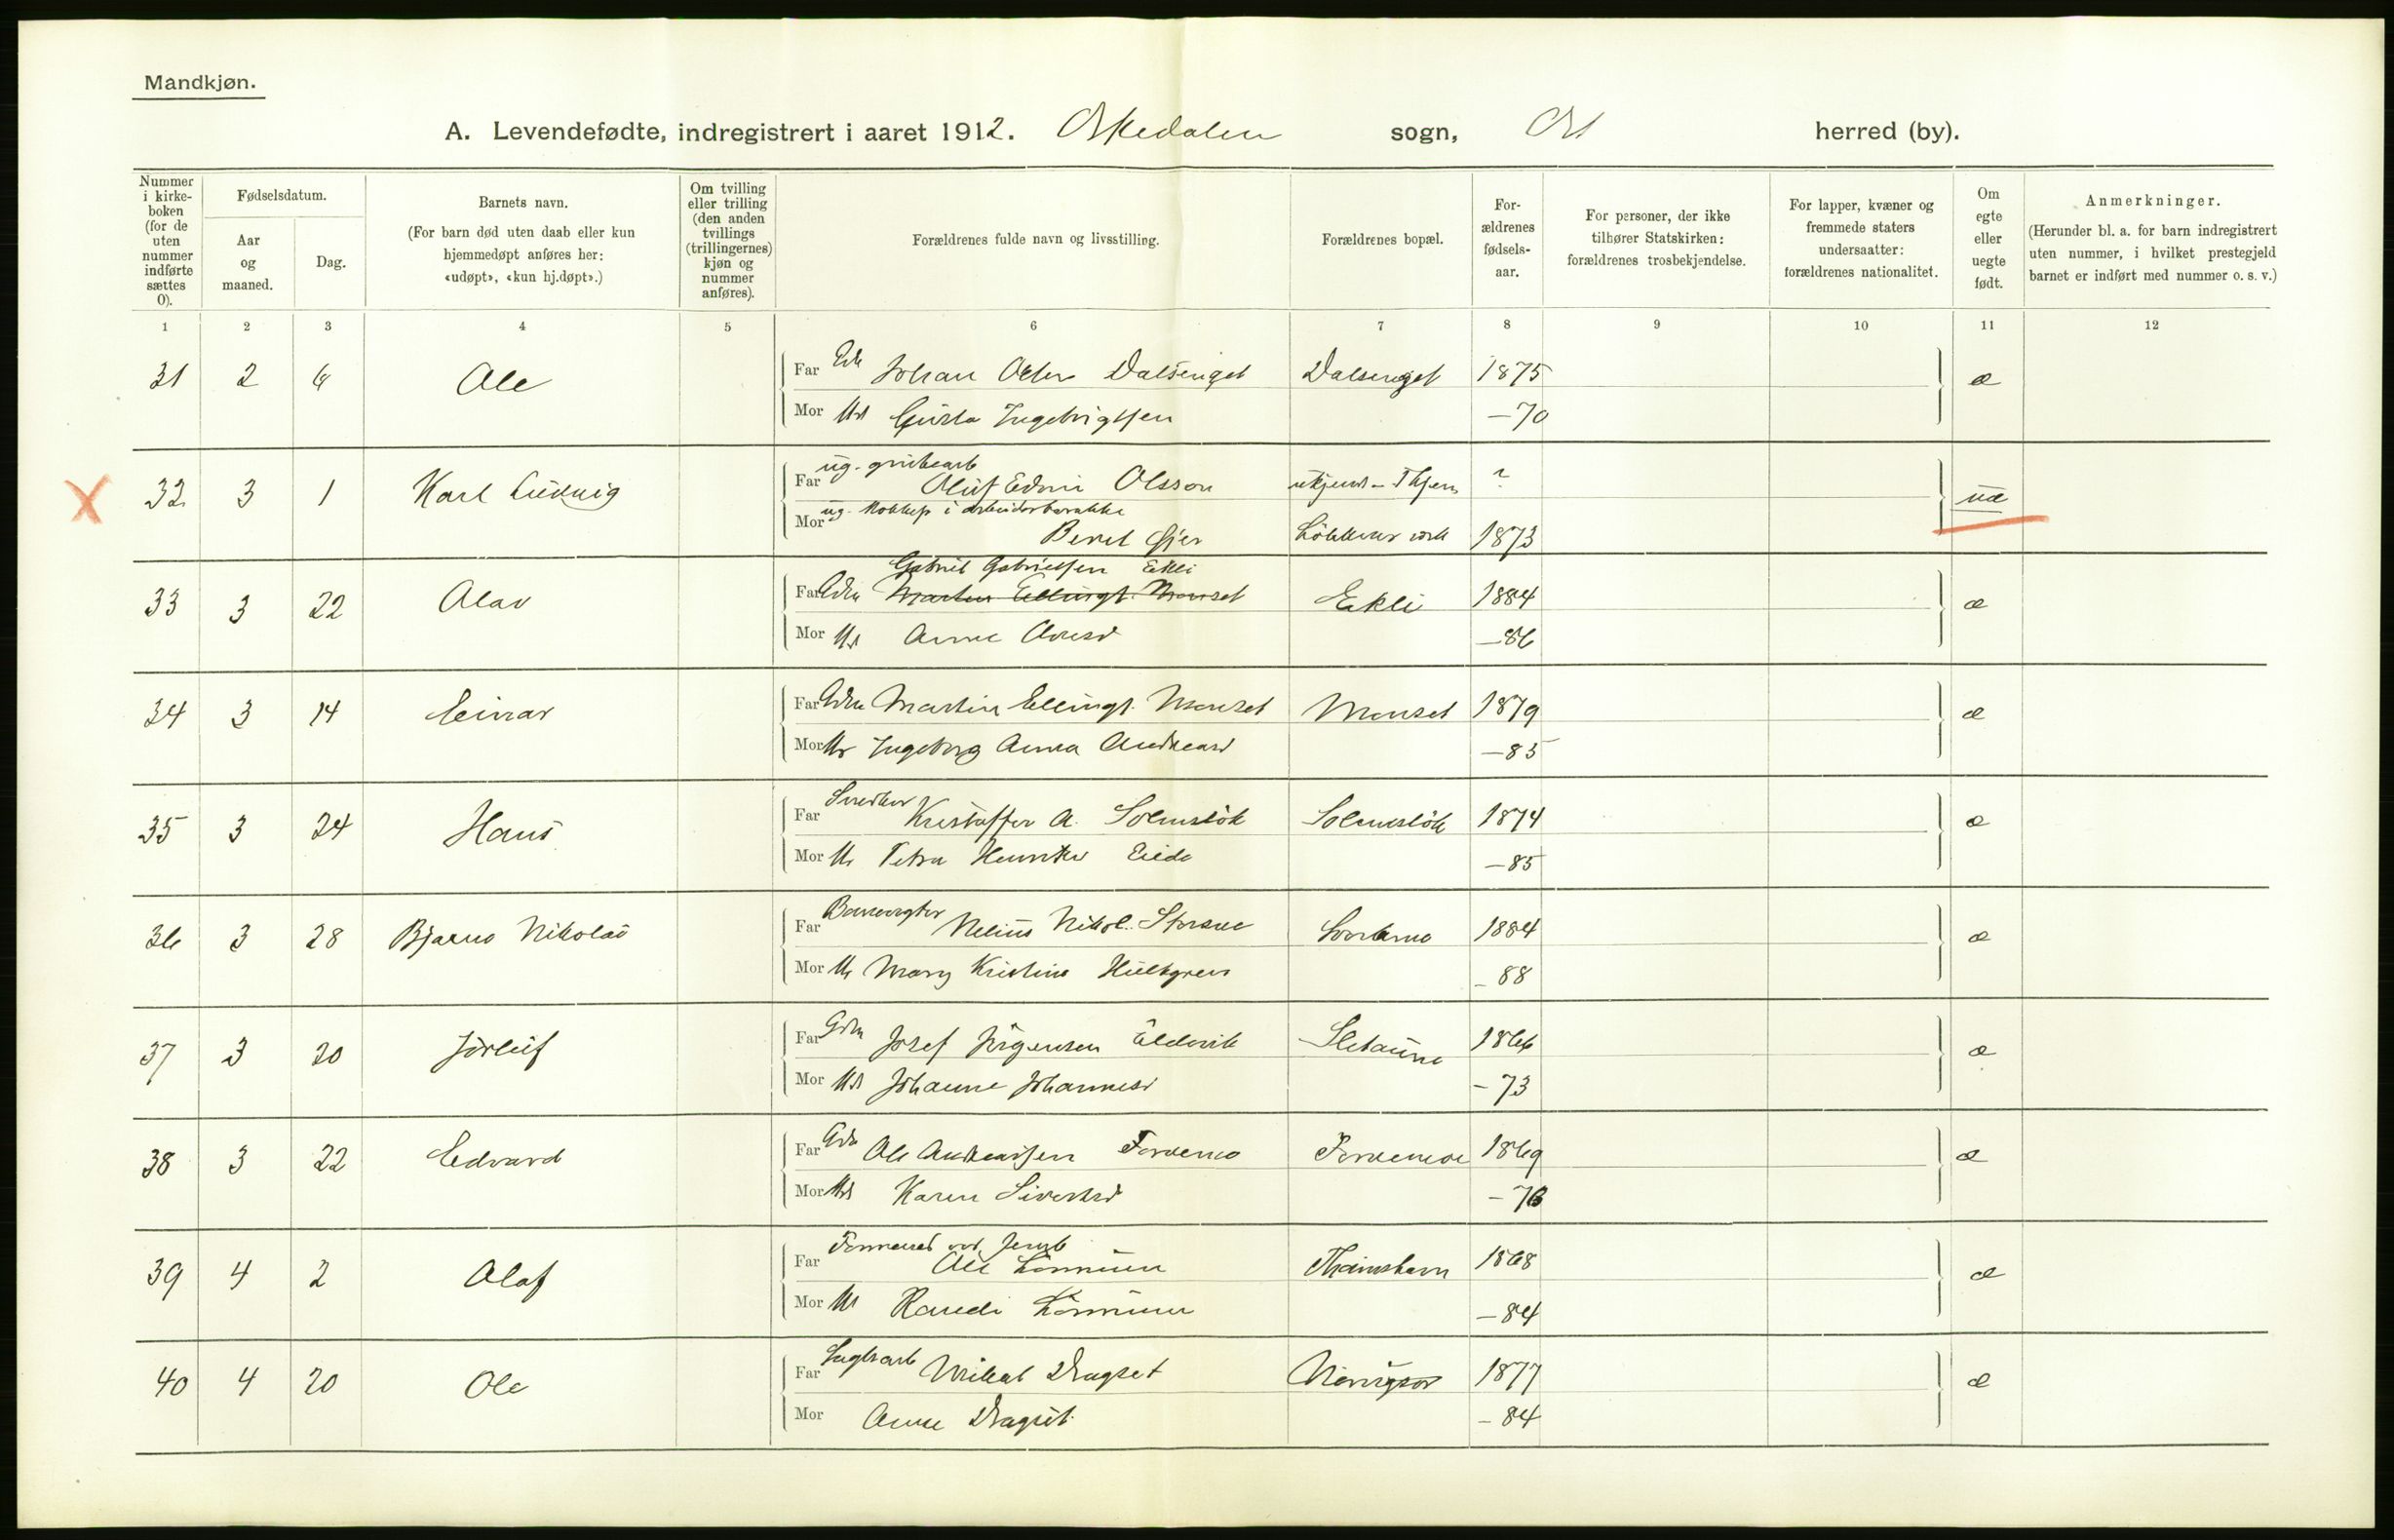 Mandkjøn.
A. Levendefødte, indregistrert i aaret 1912. Orkedalen sogn, herred (by).
Nummer i kirke-boken (for de uten nummer indførte sættes 0).
Fødselsdatum.
Aar og maaned.
Dag.
Barnets navn.
(For barn død uten daab eller kun hjemmedøpt anføres her: «udøpt», «kun hj.døpt».)
Om tvilling eller trilling (den anden tvillings (trillingernes) kjøn og nummer anføres).
Forældrenes fulde navn og livsstilling.
Forældrenes bopæl.
For-ældrenes fødsels-aar.
For personer, der ikke tilhører Statskirken: forældrenes trosbekjendelse.
For lapper, kvæner og fremmede staters undersaatter: forældrenes nationalitet.
Om egte eller uegte født.
Anmerkninger.
(Herunder bl. a. for barn indregistrert uten nummer, i hvilket prestegjeld barnet er indført med nummer o. s. v.)
1 2 3 4 5 6 7 8 9 10 11 12
31 2 6 Ole Far Johan Dalsenget Dalsenget 1875 æ
Mor Ingebrigtsen —70
X 32 3 1 Karl Ludvig Far ug. grubearb Oluf Edvin Olsson ? uæ
Mor ug. i arbeiderbarakke Beret Løkken verk 1873
Gabriel Gabrielsen Ekli
33 3 22 Olav Far Gdbr Martin Ellings. Monset Ekli 1884 æ
Mor Anne —86
34 3 14 Einar Far Gdbr Martin Ellings. Monset Monset 1879 æ
Mor Ingeborg Anna Andreasd —85
35 3 24 Hans Far Snedker Kristoffer A. Solemsløk Solemsløk 1874 æ
Mor Petra Eide —85
36 3 28 Bjarne Nikolai Far Banevogter Nelius Nikol. Svorkmo 1884 æ
Mor Mary Kristine Hultgren – 88
37 3 20 Jorleif Far Gdbr Josef Jörgensen Sletaune 1866 æ
Mor Johanne Johannesd – 73
38 3 22 Edvard Far Gdbr Ole Andreassen Forvemo Forvemoe 1869 æ
Mor Karen Sivertsd – 76
39 4 2 Olaf Far Formand ved Ole Thamshavn 1868 æ
Mor Randi —84
40 4 20 Ole Far Mikal Dragset 1877 æ
Mor Anne Dragset – 84